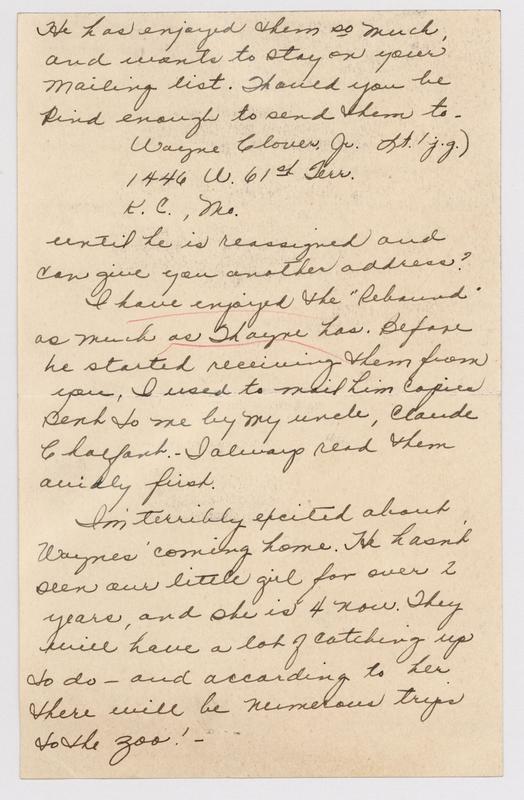 He has enjoyed them so much,
and wants to stay on your
mailing list. Would you be
kind enough to send them to -
Wayne Clover, Jr. Lt. (j.g.)
1446 W. 61st Terr.
K. C., Mo.
until he is reassigned and
can give you another address?
I have enjoyed the "Rebound"
as much as Wayne has. Before
he started receiving them from
you, I used to mail him copies
sent to me by my uncle, Claude
Chalfant. - I always read them
avidly first.
I'm terribly excited about
Waynes' coming home. He hasn't
seen our little girl for over 2
years, and she is 4 now. They
will have a lot of catching up
to do - and according to her
there will be numerous trips
to the zoo! -